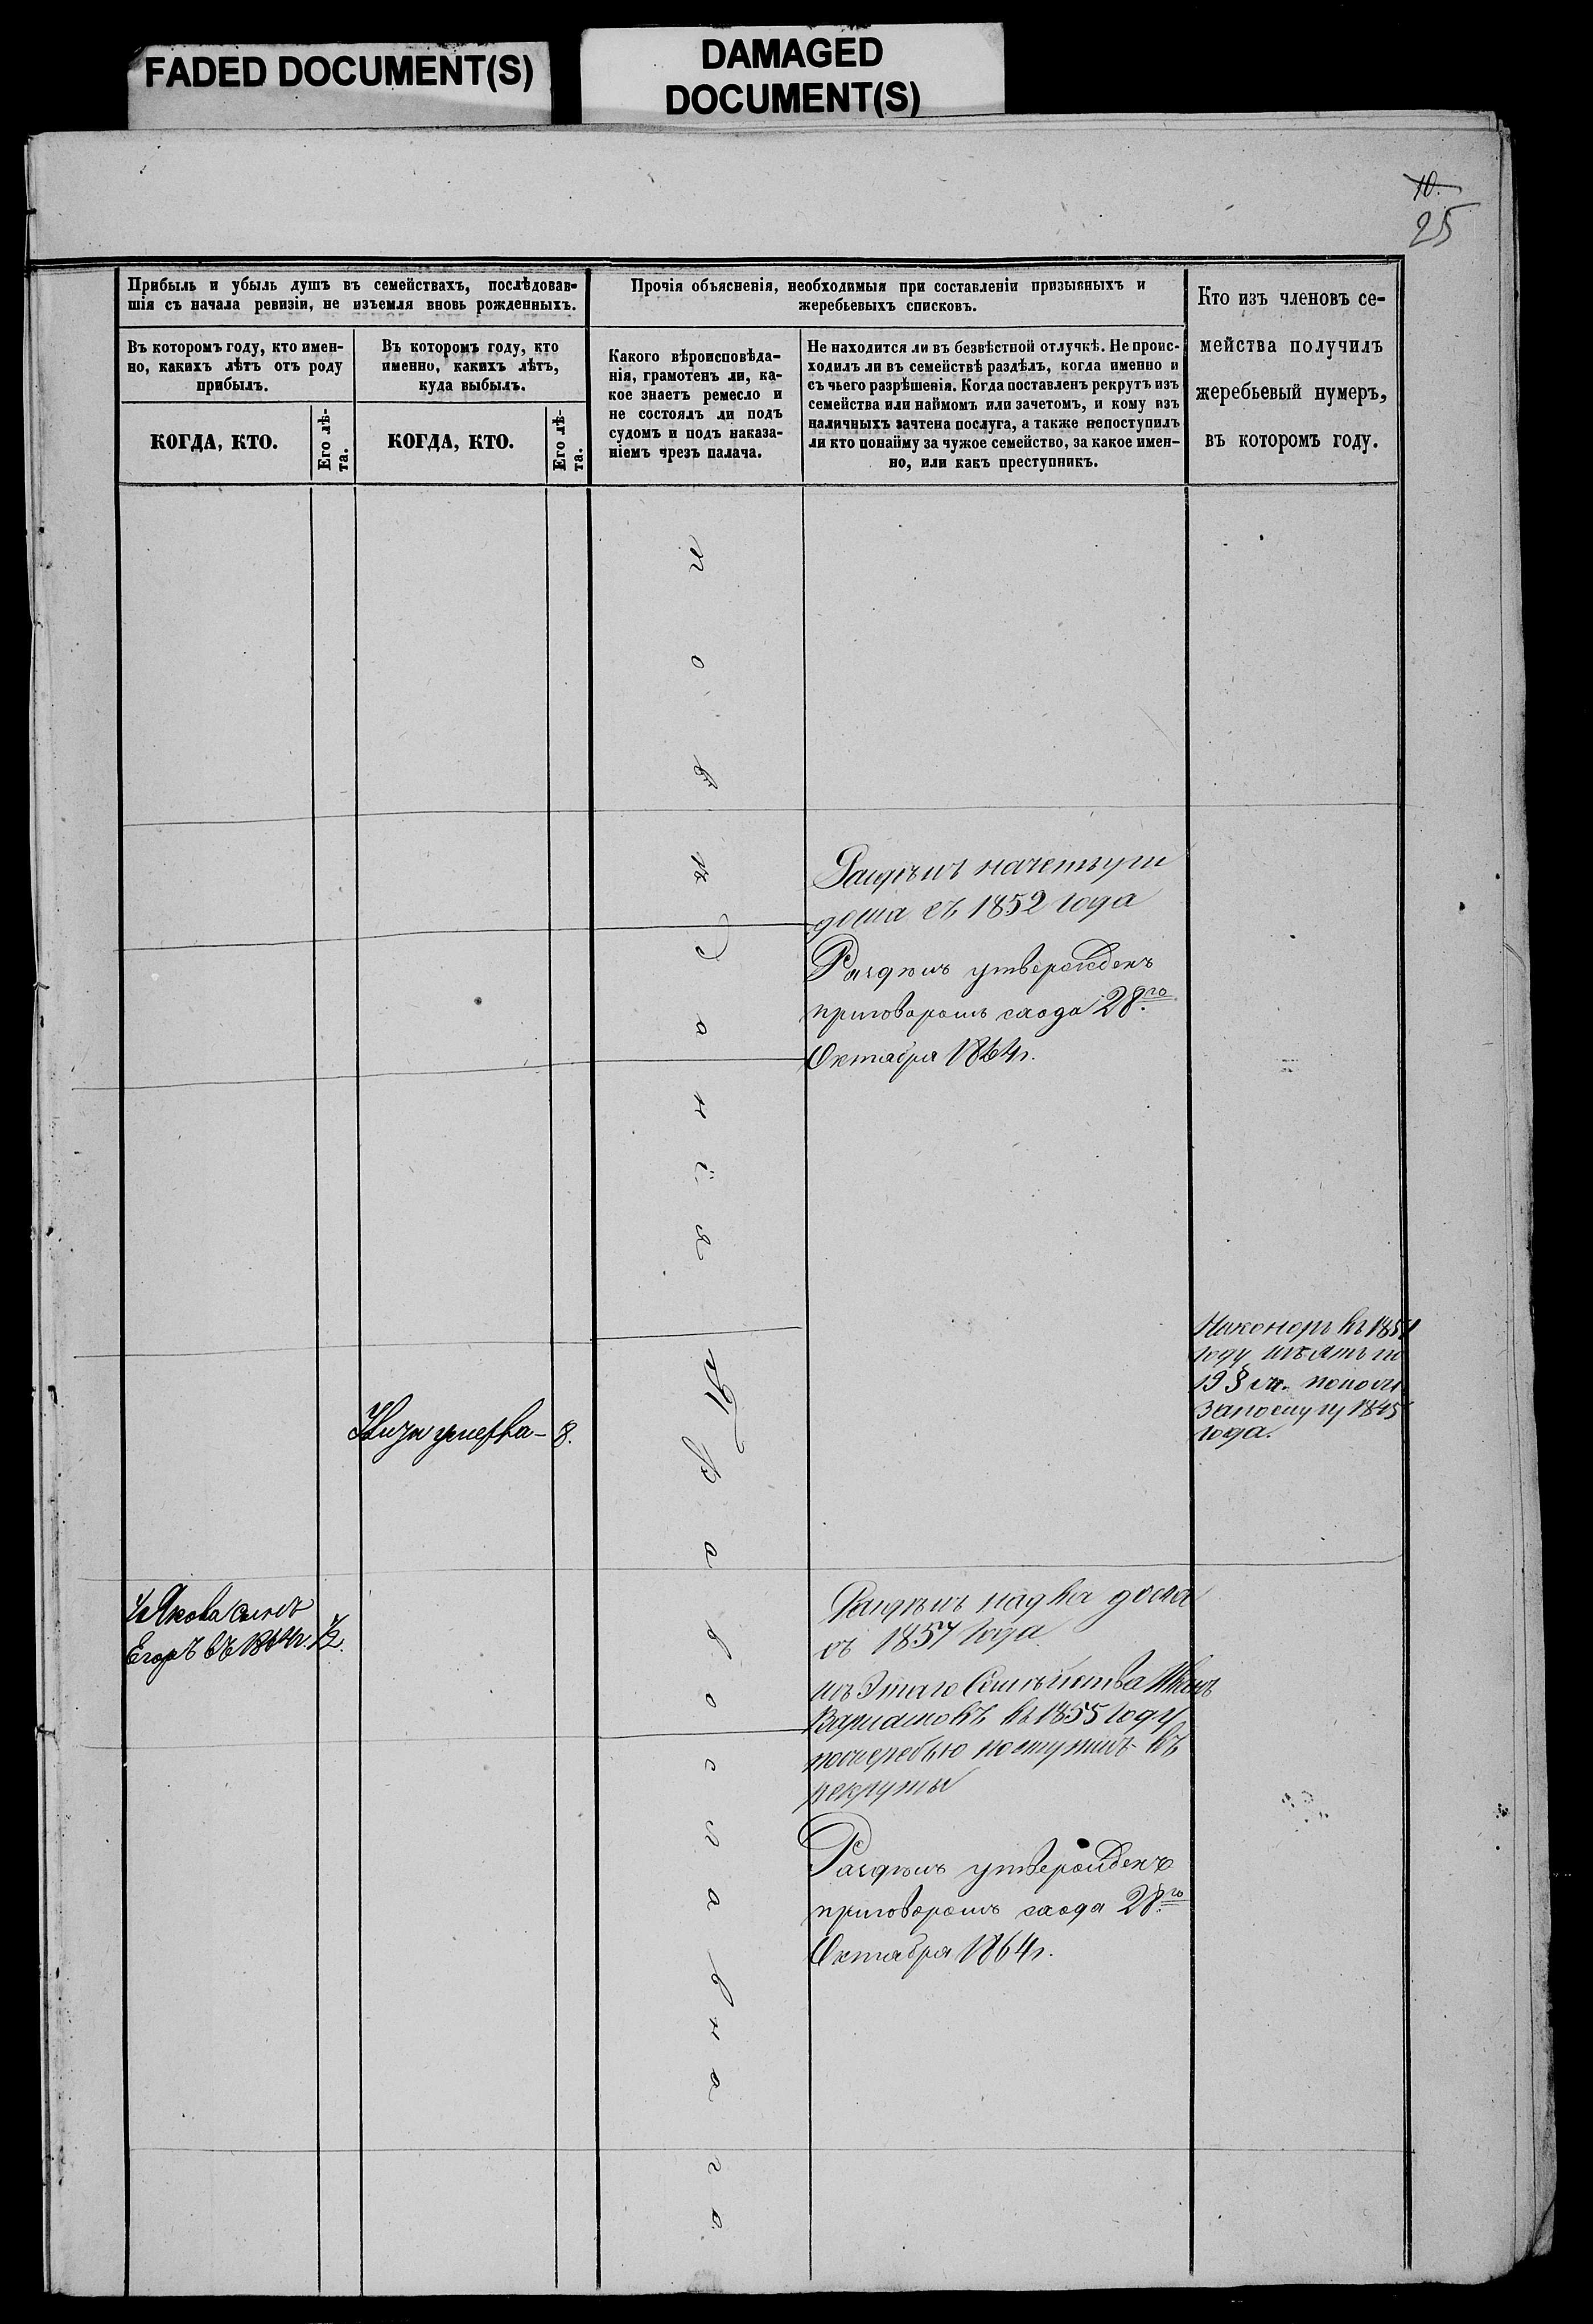 FADED DOCUMENT(S)
DAMAGED
DOCUMENT(S)
10.
25
Прибыль и убыль душъ въ семействахъ, послѣдовав-
шія съ начала ревизіи, не изъемля вновь рожденныхъ.
Въ которомъ году, кто имен-
но, какихъ лѣтъ отъ роду
прибылъ.
КОГДА, КТО.
Его лѣ-
та.
Въ которомъ году, кто
именно, какихъ лѣтъ,
куда выбылъ.
КОГДА, КТО.
Его лѣ-
та.
Прочія объясненія, необходимыя при составленіи призывныхъ и
жеребьевыхъ списковъ.
Какого вѣроисповѣда-
нія, грамотенъ ли, ка-
кое знаетъ ремесло и
не состоялъ ли подъ
судомъ и подъ наказа-
ніемъ чрезъ палача.
Не находится ли въ безвѣстной отлучкѣ. Не проис-
ходилъ ли въ семействѣ раздѣлъ, когда именно и
съ чьего разрѣшенія. Когда поставленъ рекрутъ изъ
семейства или наймомъ или зачетомъ, и кому изъ
наличныхъ зачтена послуга, а также непоступилъ
ли кто понайму за чужое семейство, за какое имен-
но, или какъ преступникъ.
Кто изъ членовъ се-
мейства получилъ
жеребьевый нумеръ,
въ которомъ году.
повѣданія
Православнаго
Раздѣлъ
дома съ 1852 года
Раздѣлъ утвержденъ
приговоромъ схода 28го
Октября 1864г.
Никоноръ въ 1854
году
19 §
запослугу 1845
года.
умерла - 8.
У Якова сынъ
Егоръ въ 1864г. 1/2.
Раздѣлъ на два дома
съ 1857 года
изъ этаго Семейства Иванъ
въ 1855 году
пожеребью поступилъ въ
рекруты
Раздѣлъ утвержденъ
приговоромъ схода 28го
Октября 1864г.